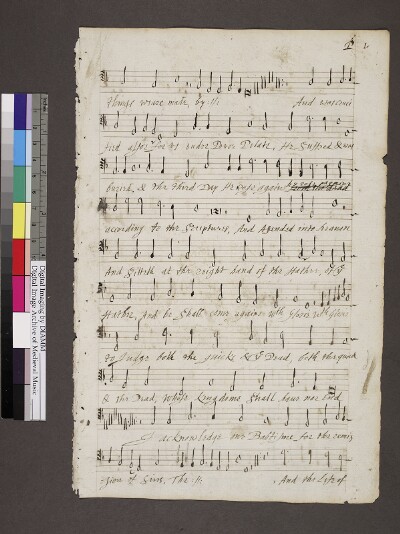 things weare made by :ll: And was cruci
fied also for us under Ponce Pilate, He Suffred & was
buried, & the third Day He rose againe
according to the Scriptures, And Asended into heauen
And Sitteth at the right hand of the Father, of ye
Father, And he Shall come againe wth glorie, wth glorie
to Judge both the quicke & ye Dead, both the quick
& the Dead, Whose Kingdome Shall haue noe End
I acknowledge one Baptisme for the remis
sion of Sins, The :ll: And the Life of
Digital Imaging by DIAMM
Digital Image Archive of Medieval Music